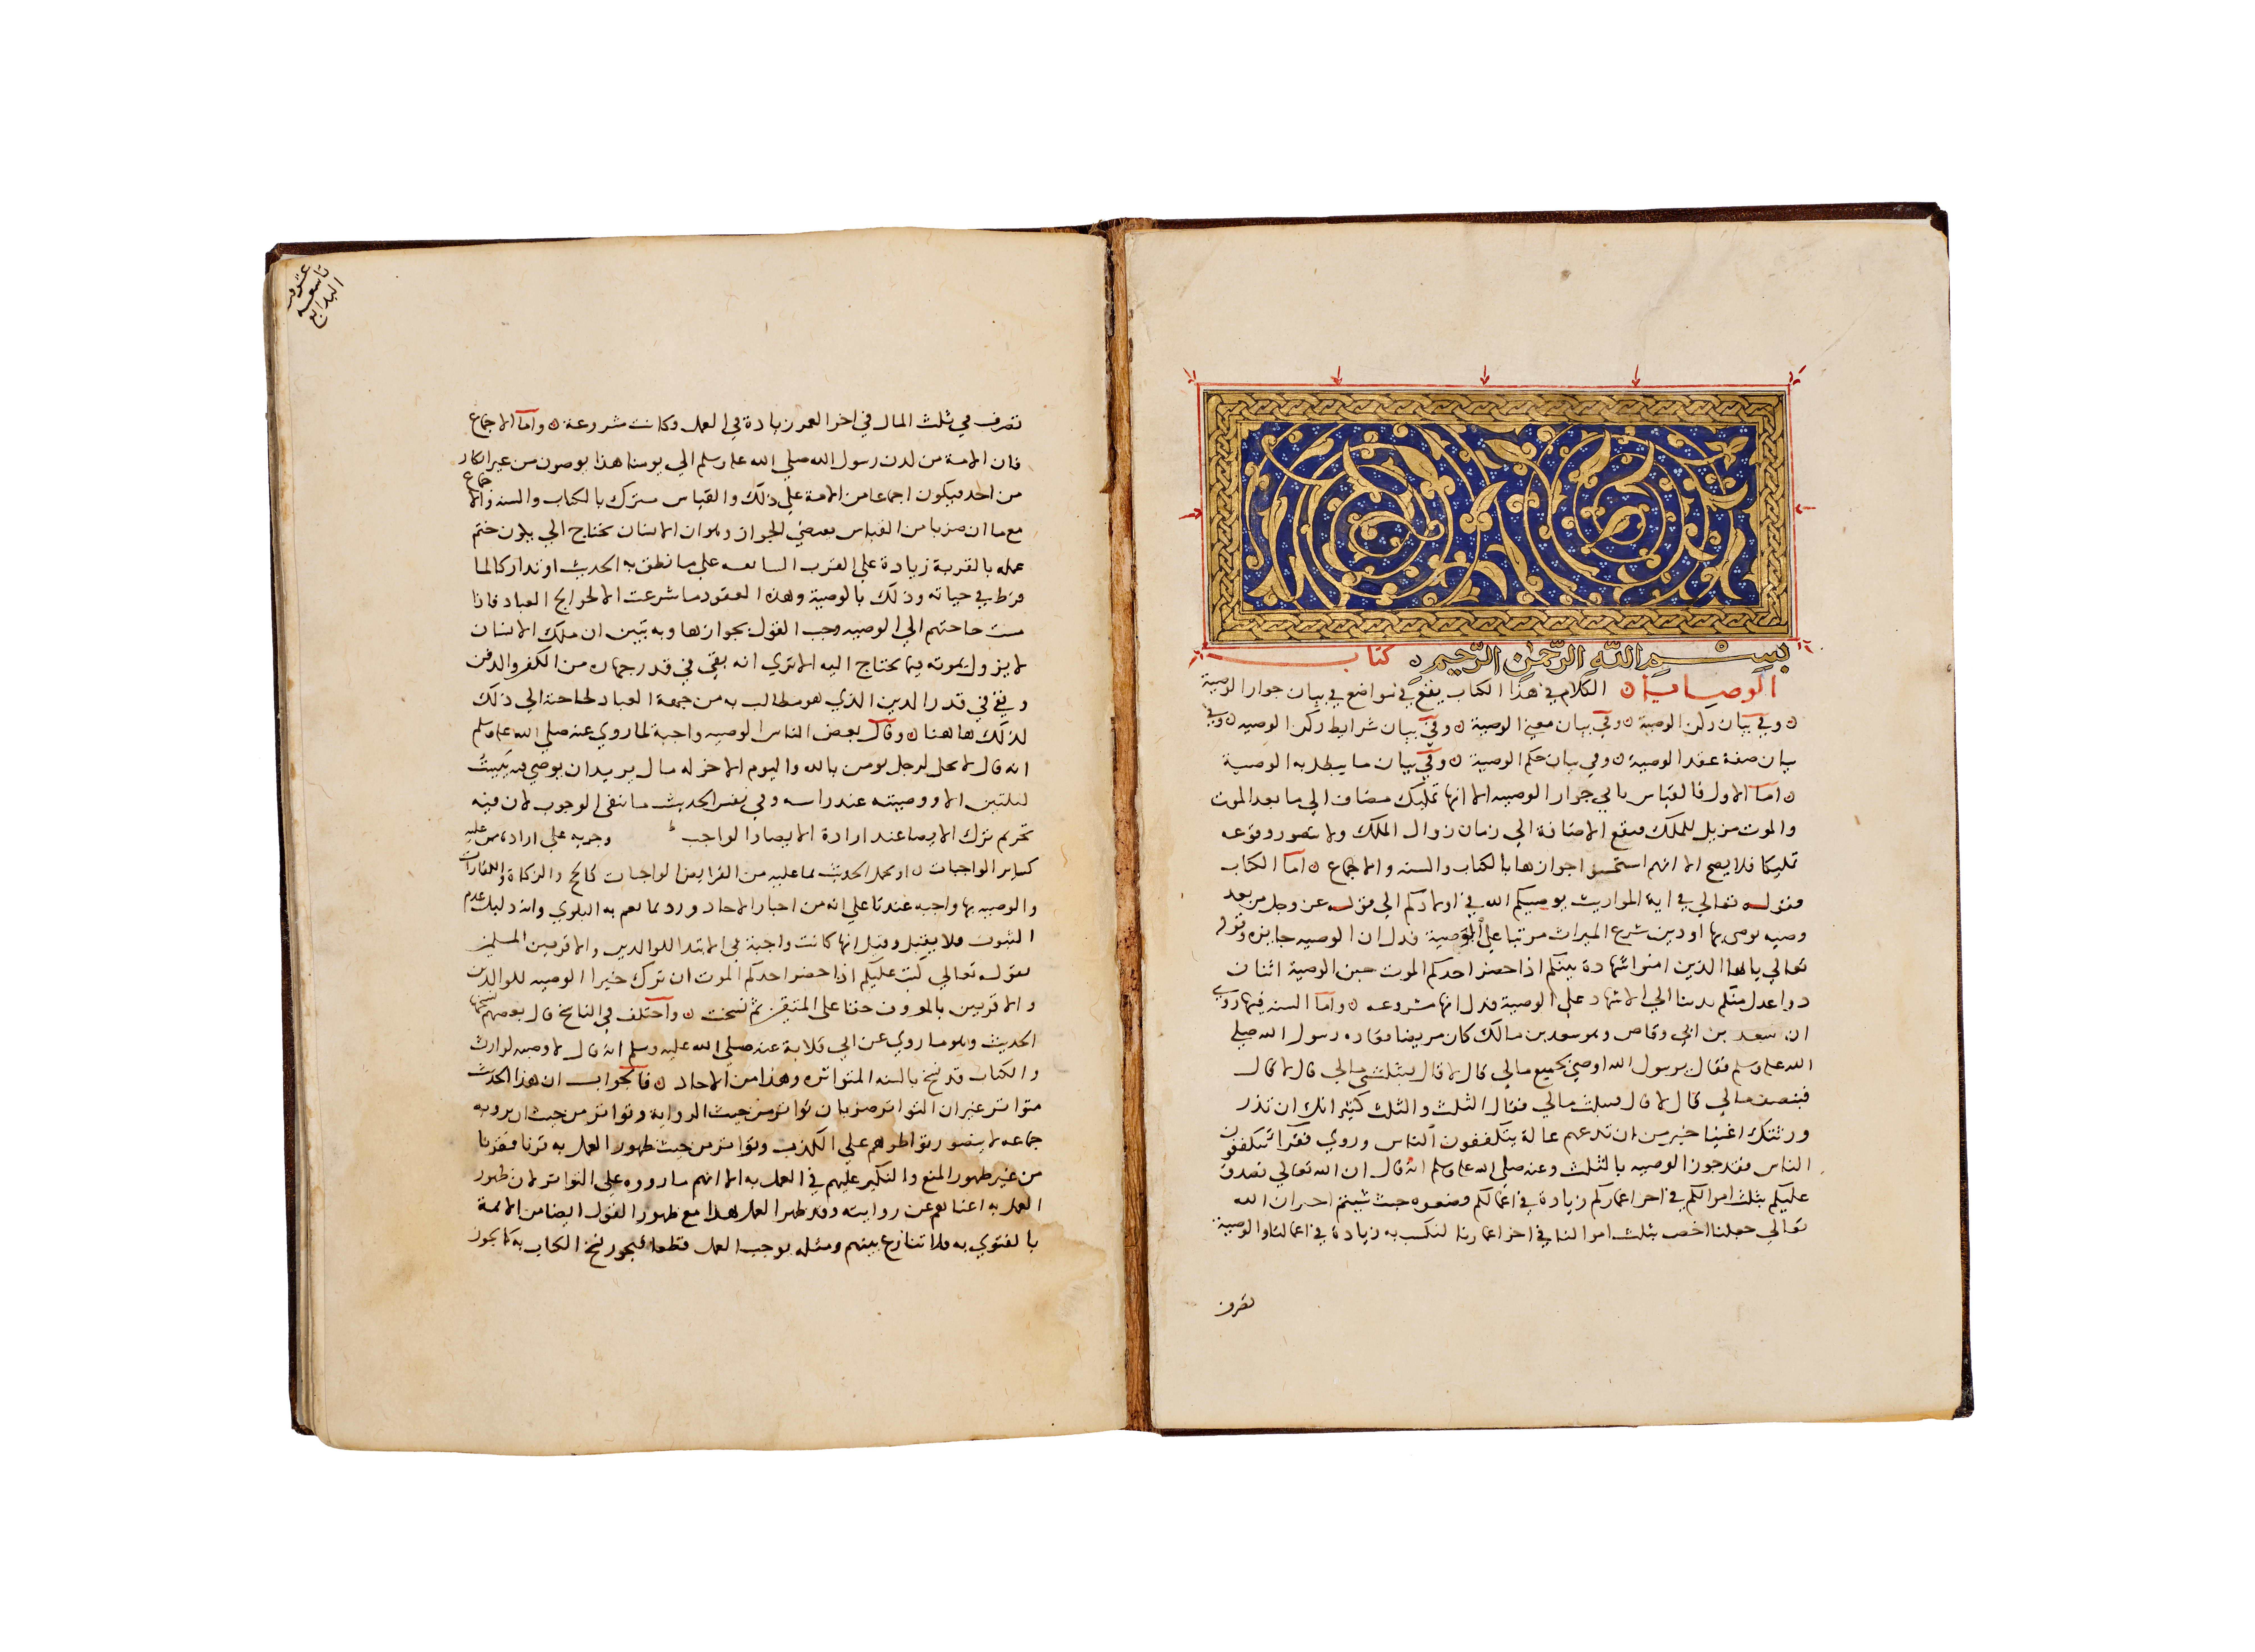 بِسْمِ اللَّهِ الرَّحْمٰنِ الرَّحِيمِ ه كتاب
الوصايا ه الكلام في هذا الكتاب يقع في مواضع في بيان جواز الوصية
ه وفي بيان ركن الوصية ه وفي بيان معني الوصية ه وفي بيان شرايط ركن الوصيه ه وفي
بيان صفة عقد الوصية ه وفي بيان حكم الوصية ه وفي بيان ما يبطل به الوصية
ه اما الاول فالقياس يابي جواز الوصيه الا انها تمليك مضاف الي ما بعد الموت
والموت مزيل للملك فيقع الاضافة الي زمان زوال الملك ولا يتصور وقوعه
تمليكا فلا يصح الا انهم استحسنوا جوازها بالكتاب والسنه والاجماع ه اما الكتاب
فقوله تعالي في اية المواريث يوصيكم الله في اولادكم الي قوله عز وجل من بعد
وصيه يوصي بها او دين شرع الميراث مرتبا علي الوصية فدل ان الوصيه جايزه وقوله
تعالي يايها الذين امنوا شهادة بينكم اذا حضر احدكم الموت حين الوصية اثنان
ذوا عدل منكم ندبنا الي الاشهاد علي الوصية فدل انها مشروعه ه واما السنه فيما روي
ان سعد بن ابي وقاص وهو سعد بن مالك كان مريضا فعاده رسول الله صلي
الله عليه وسلم فقال يرسول الله اوصي بجميع مالي قال لا قال بثلثي مالي قال لا قال
فبنصف مالي قال لا قال فبثلث مالي فقال الثلث والثلث كثير انك ان تذر
ورثتك اغنيا خير من ان تدعهم عالة يتكففون الناس وروي فقرا يتكففون
الناس فقد جوز الوصيه بالثلث وعنه صلي الله عليه وسلم انه قال ان الله تعالي تصدق
عليكم بثلث اموالكم في اخر اعماركم زيادة في اعمالكم فضعوه حيث شيتم اخبر ان الله
تعالي جعلنا اخص بثلث اموالنا في اخر اعمارنا لنكسب به زيادة في اعمالنا والوصية
تصرف
عشرون
تاسعه
البدايع
تصرف في ثلث المال في اخر العمر زيادة في العمل وكانت مشروعة ه واما الاجماع
فان الامة من لدن رسول الله صلي الله عليه وسلم الي يومنا هذا يوصون من غير انكار
من احد فيكون اجماعا من الامة علي ذلك والقياس يترك بالكتاب والسنه والاجماع
مع ما ان ضربا من القياس يقتضي الجواز وهو ان الانسان يحتاج الي يكون ختم
عمله بالقربة زيادة علي القرب السابقه علي ما نطق به الحديث او تداركا لما
فرط في حياته وذلك بالوصية وهذه العقود ما شرعت الا لحوايج العباد فاذا
مست حاجتهم الي الوصيه وجب القول بجوازها وبه تبين ان ملك الانسان
لا يزول بموته فيما يحتاج اليه الا تري انه بقي في قدر جهازه من الكفن والدفن
وبقي في قدر الدين الذي هو مطالب به من جهة العباد لحاجته الي ذلك
كذلك هاهنا ه وقال بعض الناس الوصيه واجبة لما روي عنه صلي الله عليه وسلم
انه قال لا يحل لرجل يومن بالله واليوم الاخر له مال يريد ان يوصي فيه يبيت
ليلتين الا ووصيته عند راسه وفي نفس الحديث ما ينفي الوجوب لان فيه
تحريم ترك الايصا عند ارادة الايصا والواجب
كساير الواجبات ه او يحمل الحديث بما عليه من الفرايض والواجبات كالحج والزكاة والكفارات
والوصيه بها واجبه عندنا علي انه من اخبار الاحاد ورد فيما تعم به البلوي وانه دليل عدم
الثبوت فلا يقبل وقيل انها كانت واجبة في الابتدا للوالدين والاقربين المسلمين
لقوله تعالي كتب عليكم اذا حضر احدكم الموت ان ترك خيرا الوصيه للوالدين
والاقربين بالمعروف حقا علي المتقين ثم نسخت ه واختلف في الناسخ قال بعضهم نسخها
الحديث وهو ما روي عن ابي قلابة عنه صلي الله عليه وسلم انه قال لا وصيه لوارث
والكتاب قد نسخ بالسنه المتواتره وهذا من الاحاد ه فالجواب ان هذا الحديث
متواتر غير ان التواتر ضربان تواتر من حيث الرواية وتواتر من حيث ان يرويه
جماعه لا يتصور تواطوهم علي الكذب وتواتر من حيث ظهور العمل به قرنا فقرنا
من غير ظهور المنع والنكير عليهم في العمل به الا انهم ما رووه علي التواتر لان ظهور
العمل به اغناهم عن روايته وقد ظهر العمل بهذا مع ظهور القول ايضا من الايمة
بالفتوي به بلا تنازع بينهم ومثله يوجب العمل قطعا فيجوز نسخ الكتاب به كما يجوز